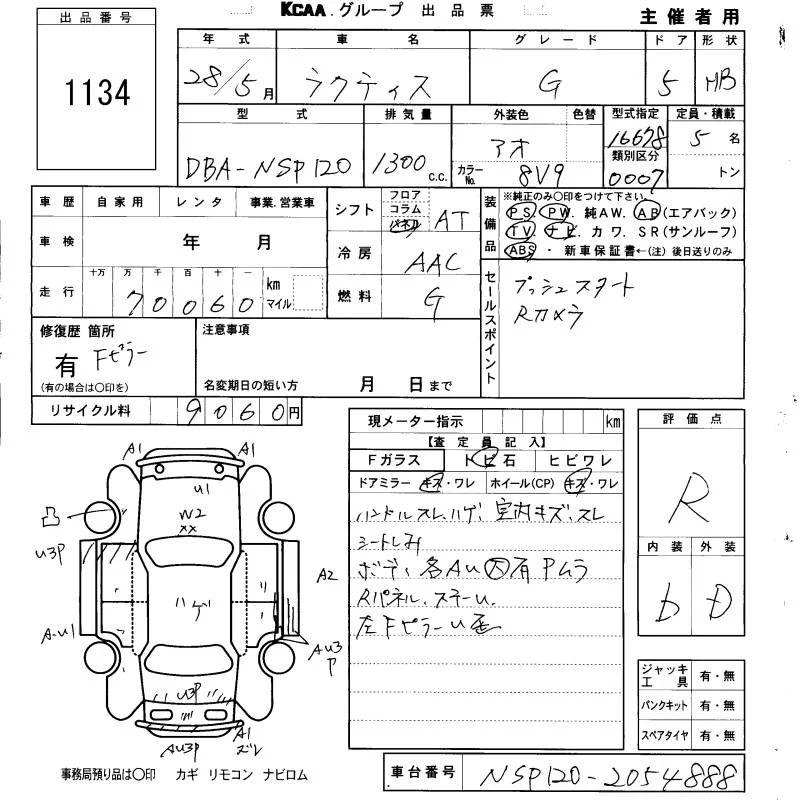 KCAA.グループ 出品票
主催者用
出品番号
1134
年式 車名 グレード ドア 形状
28/5月 ラクティス G 5 HB
型式 排気量 外装色 色替 型式指定 定員・積載
DBA-NSP120 1300 c.c. アオ カラーNo. 8V9 16678 類別区分 0007 5名 トン
車歴 自家用 レンタ 事業.営業車
シフト フロア コラム パネル AT
装備品 ※純正のみ〇印をつけて下さい。
PS. PW. 純AW. AB(エアバック)
TV. ナビ. カワ. SR(サンルーフ)
ABS・新車保証書←(注)後日送りのみ
車検 年 月
冷房 AAC
走行 十万 万 千 百 十 一 km マイル
70060
燃料 G
セールスポイント
プッシュスタート
Rカメラ
修復歴 箇所
有 Fピラー
(有の場合は〇印を)
注意事項
名変期日の短い方 月 日まで
リサイクル料 9060円
現メーター指示 km
【査定員記入】
Fガラス トビ石 ヒビワレ
ドアミラー キズ・ワレ ホイール(CP) キズ・ワレ
ハンドルスレ、ハゲ、室内キズ、スレ
シートしみ
ボデ、各AU大有 Pムラ
Rパネル、ステーU、
左FピラーU
評価点
R
内装 外装
b D
ジャッキ工具 有・無
パンクキット 有・無
スペアタイヤ 有・無
A1 A1
U1
W2
XX
凸
U3P
A2
ハゲ
A-U1
AU3
P
U3P
AU3P
A1
ズレ
事務局預り品は〇印 カギ リモコン ナビロム
車台番号 NSP120-2054888